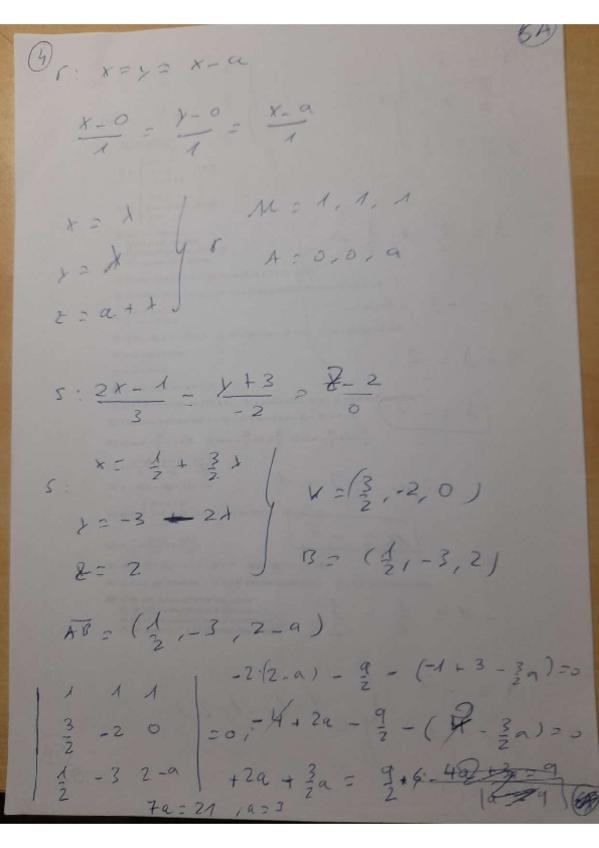 4 5A
r: x = y = x - a
x-0/1 = y-0/1 = x-a/1
x = λ
y = λ
z = a + λ
r
M = 1, 1, 1
A = 0, 0, a
s: 2x-1/3 = y+3/-2 = z-2/0
s:
x = 1/2 + 3/2 λ
y = -3 - 2λ
z = 2
V = (3/2, -2, 0)
B = (1/2, -3, 2)
AB = (1/2, -3, 2-a)
-2·(2-a) - 9/2 - (-1 + 3 - 3/2 a) = 0
| 1 1 1 |
| 3/2 -2 0 | = 0, -4 + 2a - 9/2 - (2 - 3/2 a) = 0
| 1/2 -3 2-a |
+2a + 3/2 a = 9/2 + 6
7a = 21, a = 3